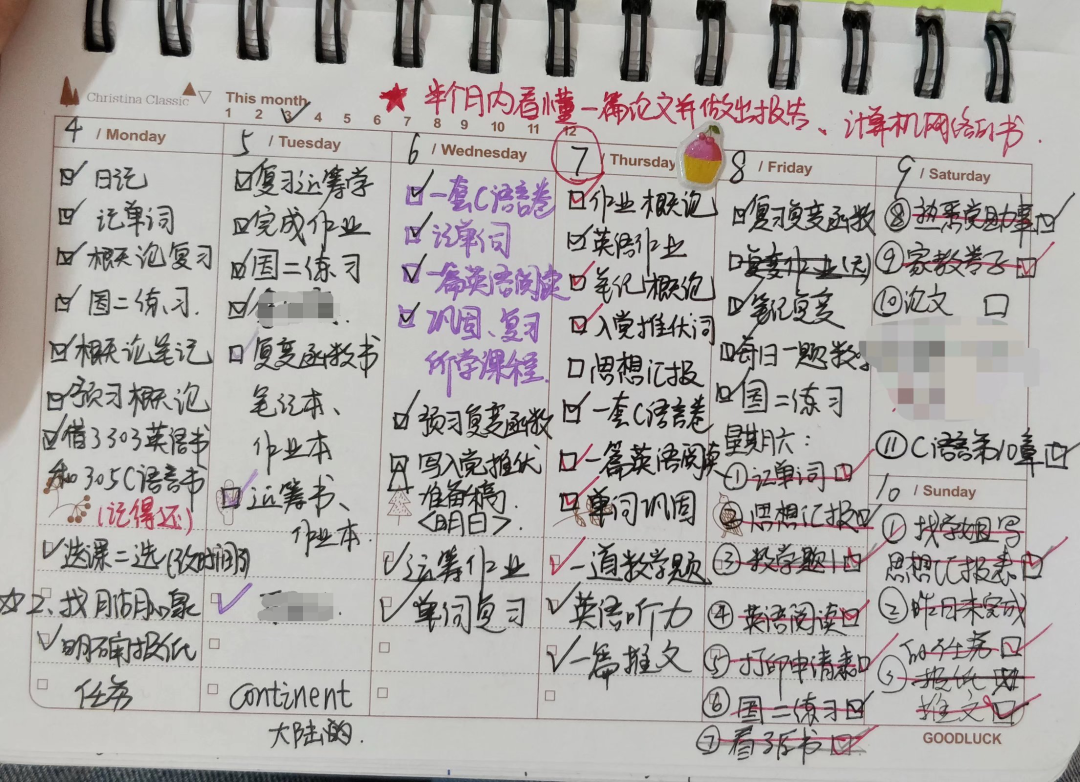 Christina Classic
This month
1 2 3 4 5 6 7 8 9 10 11 12
★ 半个月内看懂一篇论文并做出报告、计算机网络的书.
4 / Monday
日记
记单词
概论复习
国二练习.
概论笔记
预习概论
借3303英语书
和305C语言书
(记得还)
选课二选
☆2、找
明确报纸
任务
5 / Tuesday
复习运筹学
完成作业
国二练习
复变函数书
笔记本、
作业本
运筹书、
作业本.
continent
大陆的.
6 / Wednesday
一套C语言卷
记单词
一篇英语阅读
巩固、复习
所学课程.
预习复变函数
写入党推优
准备稿
<明日>.
运筹作业
单词复习
7 / Thursday
作业概论
英语作业
笔记概论
入党推优词
思想汇报
一套C语言卷
一篇英语阅读
单词巩固
一道数学题
英语听力
一篇推文
8 / Friday
复习复变函数
复变作业(元)
笔记复变
每日一题数
国二练习
星期六:
①记单词
②思想汇报
③数学题1
④英语阅读
⑤打印申请表
⑥国二练习
⑦看3后书
9 / Saturday
⑧
⑨家教卷子
⑩论文
⑪C语言第10章
10 / Sunday
①找学姐写
思想汇报表
②昨日未完成
的任务
③报纸
推文
GOODLUCK